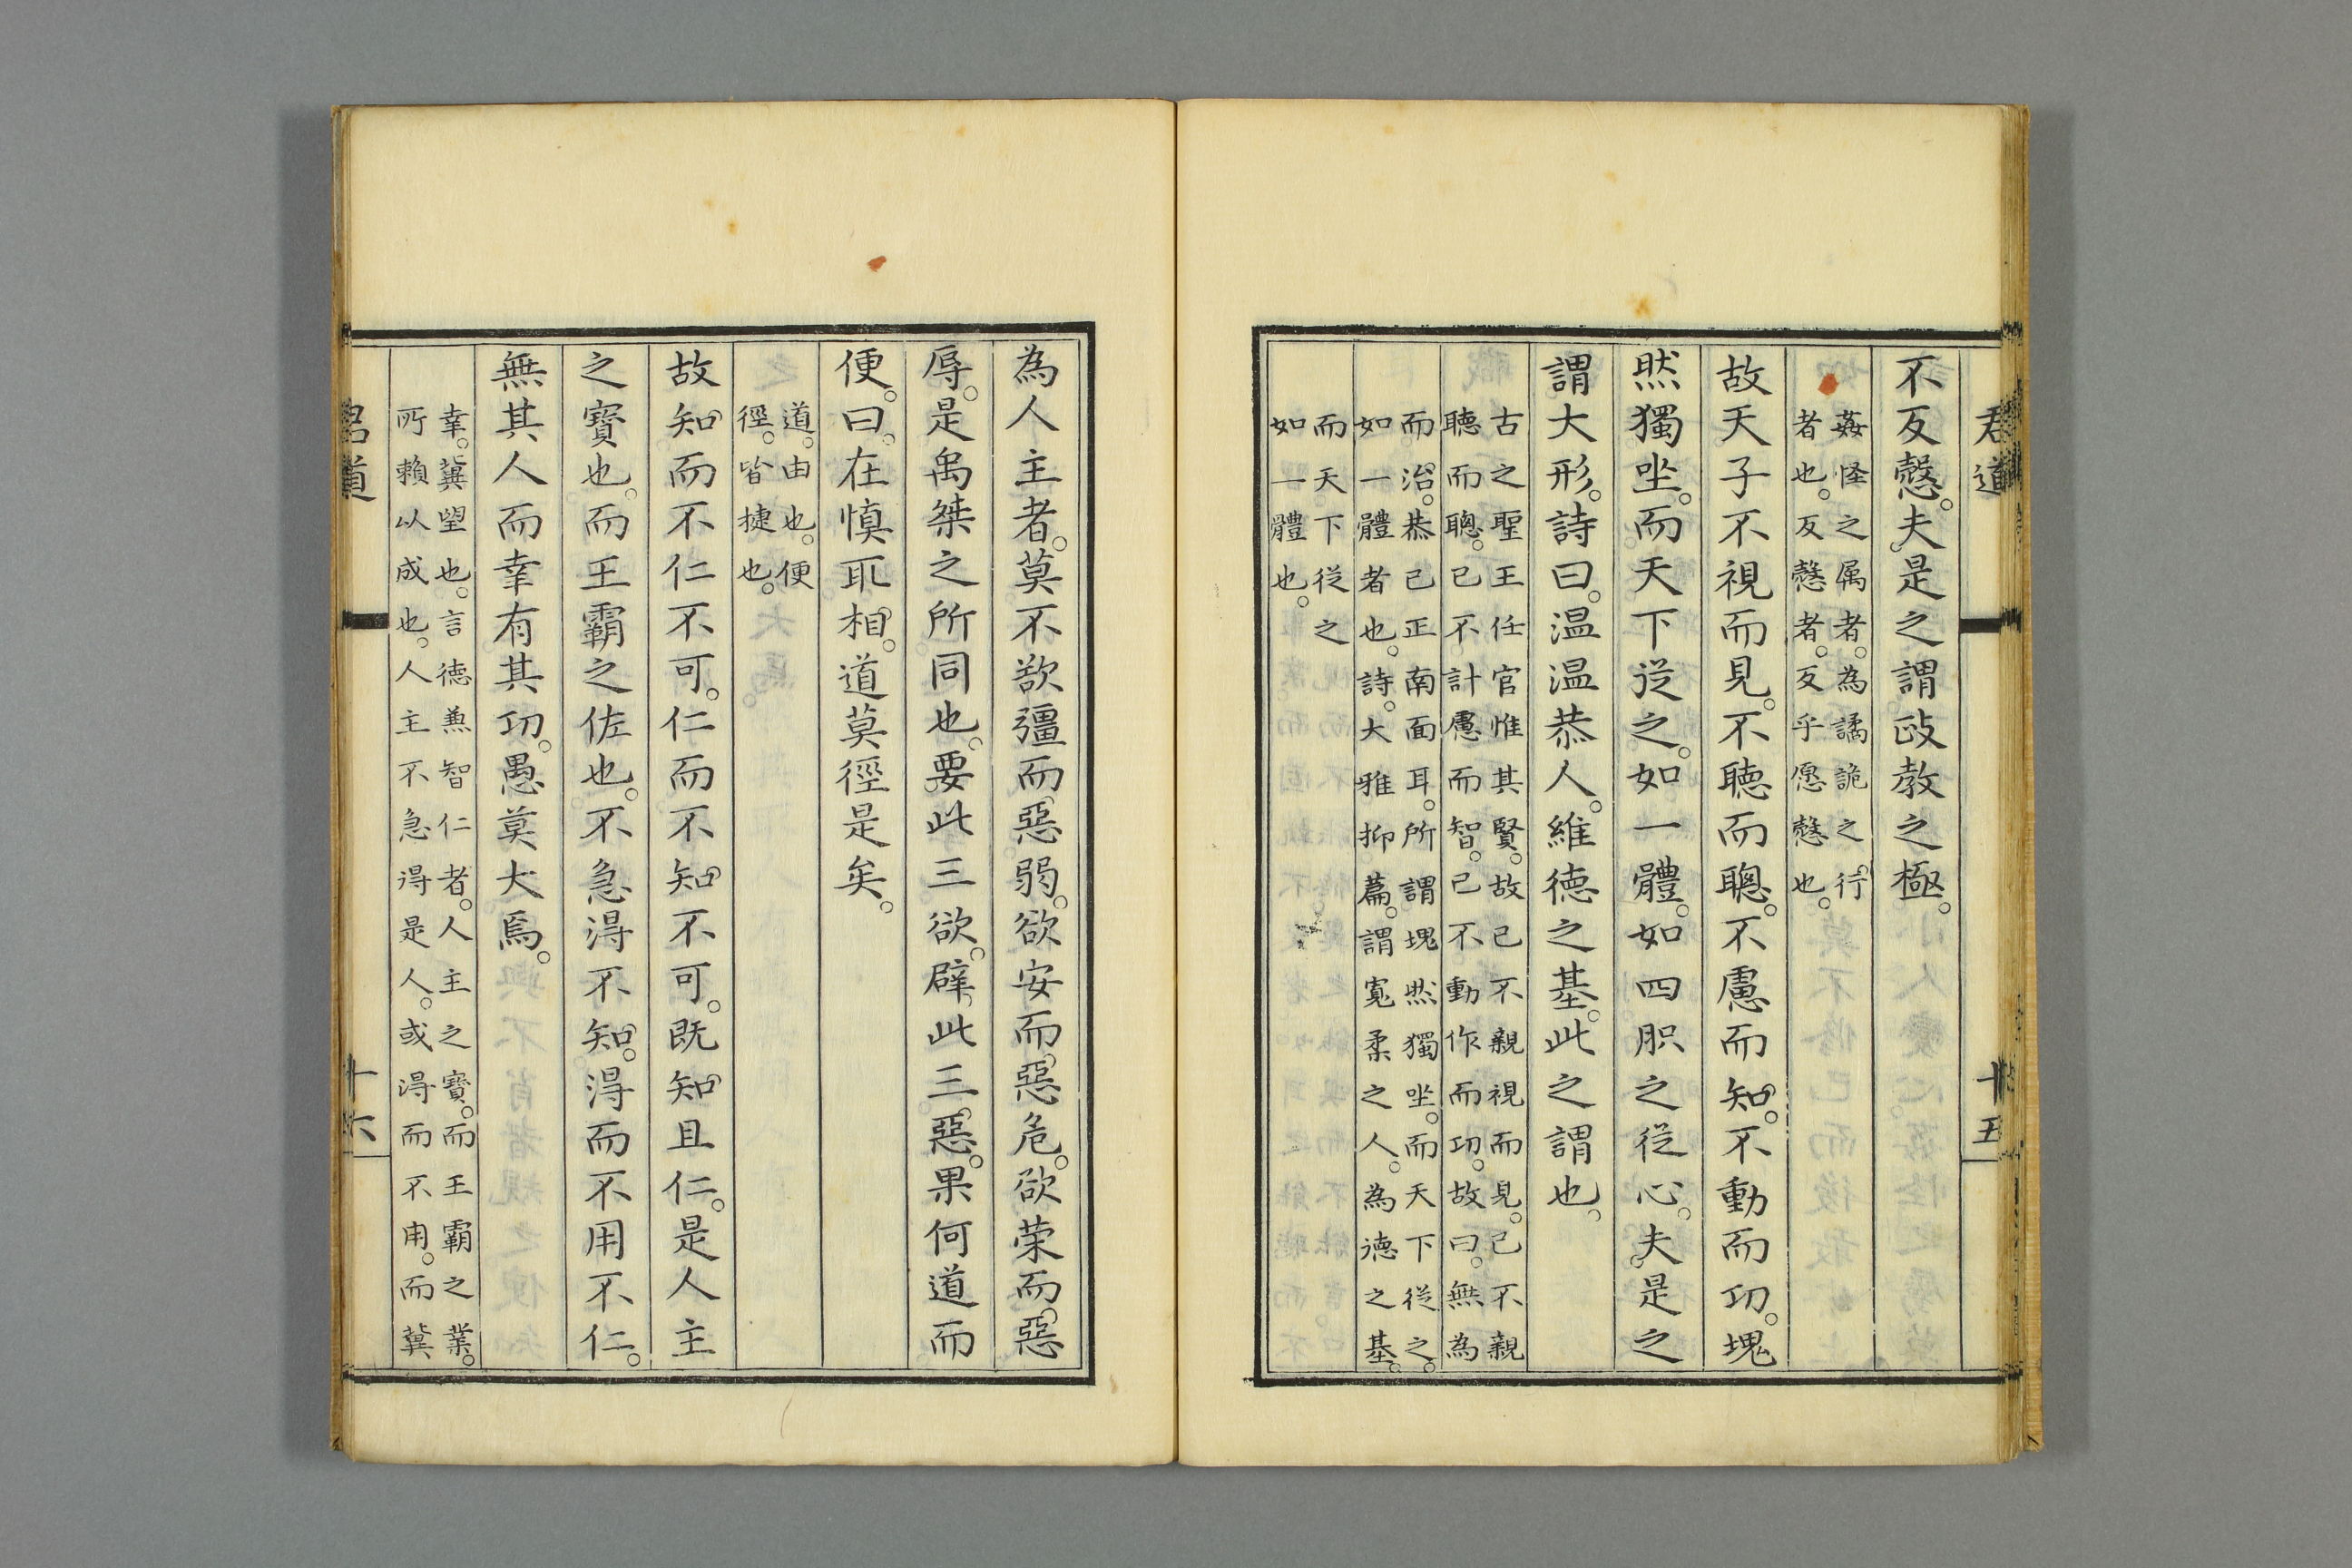 君道
十五
不反愨。夫是之謂政教之極。
姦怪之属者。為譎詭之行
者也。反愨者。反乎愿愨也。
故天子不視而見。不聴而聰。不慮而知。不動而功。塊
然獨坐。而天下従之。如一體。如四胑之従心。夫是之
謂大形。詩曰。温温恭人。維徳之基。此之謂也。
古之聖王任官惟其賢。故己不親視而見。己不親
聴而聰。己不計慮而智。己不動作而功。故曰。無為
而治。恭己正南面耳。所謂塊然獨坐。而天下従之。
如一體者也。詩。大雅抑篇。謂寛柔之人。為徳之基。
而天下従之
如一體也。
為人主者。莫不欲彊而惡弱。欲安而惡危。欲荣而惡
辱。是禹桀之所同也。要此三欲。辟此三惡。果何道而
便。曰。在慎取相。道莫徑是矣。
道。由也。便
徑。皆捷也。
故知而不仁不可。仁而不知不可。既知且仁。是人主
之寳也。而王霸之佐也。不急得不知。得而不用不仁。
無其人而幸有其功。愚莫大焉。
幸。冀望也。言徳兼智仁者。人主之寳。而王霸之業。
所頼以成也。人主不急得是人。或得而不用。而冀
君道
十六